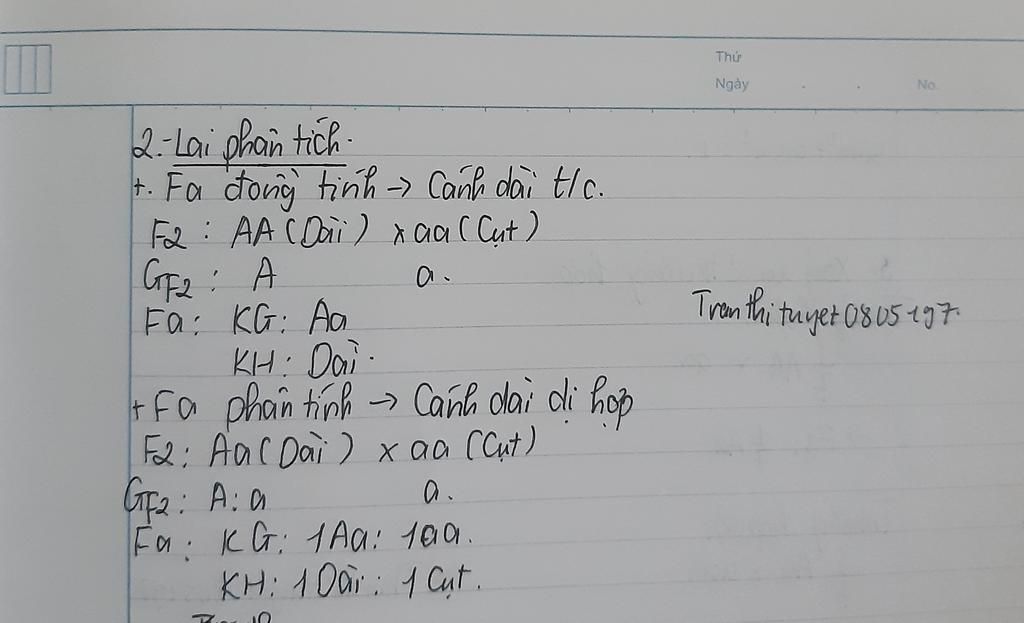 Thứ
Ngày . . No.
2.-Lai phân tích.
+. Fa đồng tính → Cánh dài t/c.
F2 : AA (Dài) x aa (Cụt)
GF2 : A a.
Fa : KG : Aa
KH : Dài.
Tranthituyet0805197.
+ Fa phân tính → Cánh dài dị hợp
F2 : Aa (Dài) x aa (Cụt)
GF2 : A : a a.
Fa : KG : 1Aa : 1aa.
KH : 1 Dài : 1 Cụt.